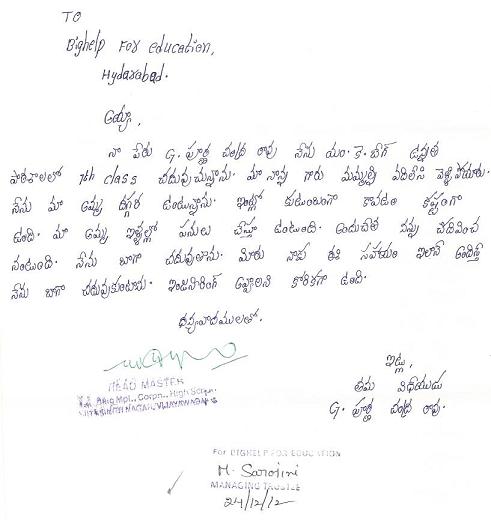 TO
Bighelp For education,
Hydarabad.
అయ్యా,
నా పేరు G. పూర్ణ చంద్ర రావు నేను యం. కె. బేగ్ ఉన్నత
పాఠశాలలో 7th class చదువుచున్నాను. మా నాన్న గారు మమ్మల్ని వదిలేసి వెళ్ళిపోయారు.
నేను మా అమ్మ దగ్గర ఉంటున్నాను. ఇంట్లో కుటుంబంగా కావడం కష్టంగా
ఉంది. మా అమ్మ ఇళ్ళల్లో పనులు చేస్తూ ఉంటుంది. అందుచేత నన్ను చదివించ
నంటుంది. నేను బాగా చదువుతాను. మీరు నాకు ఈ సహాయం ఇలానే అందిస్తే
నేను బాగా చదువుకుంటాను. ఇంజనీరింగ్ అవ్వాలని కోరికగా ఉంది.
ధన్యవాదములతో.
HEAD MASTER
Mpl., Corpn., High School
ఇట్లు,
తమ విధేయుడు
G. పూర్ణ చంద్ర రావు.
For BIGHELP FOR EDUCATION
M. Sarojini
MANAGING TRUSTEE
24/12/12